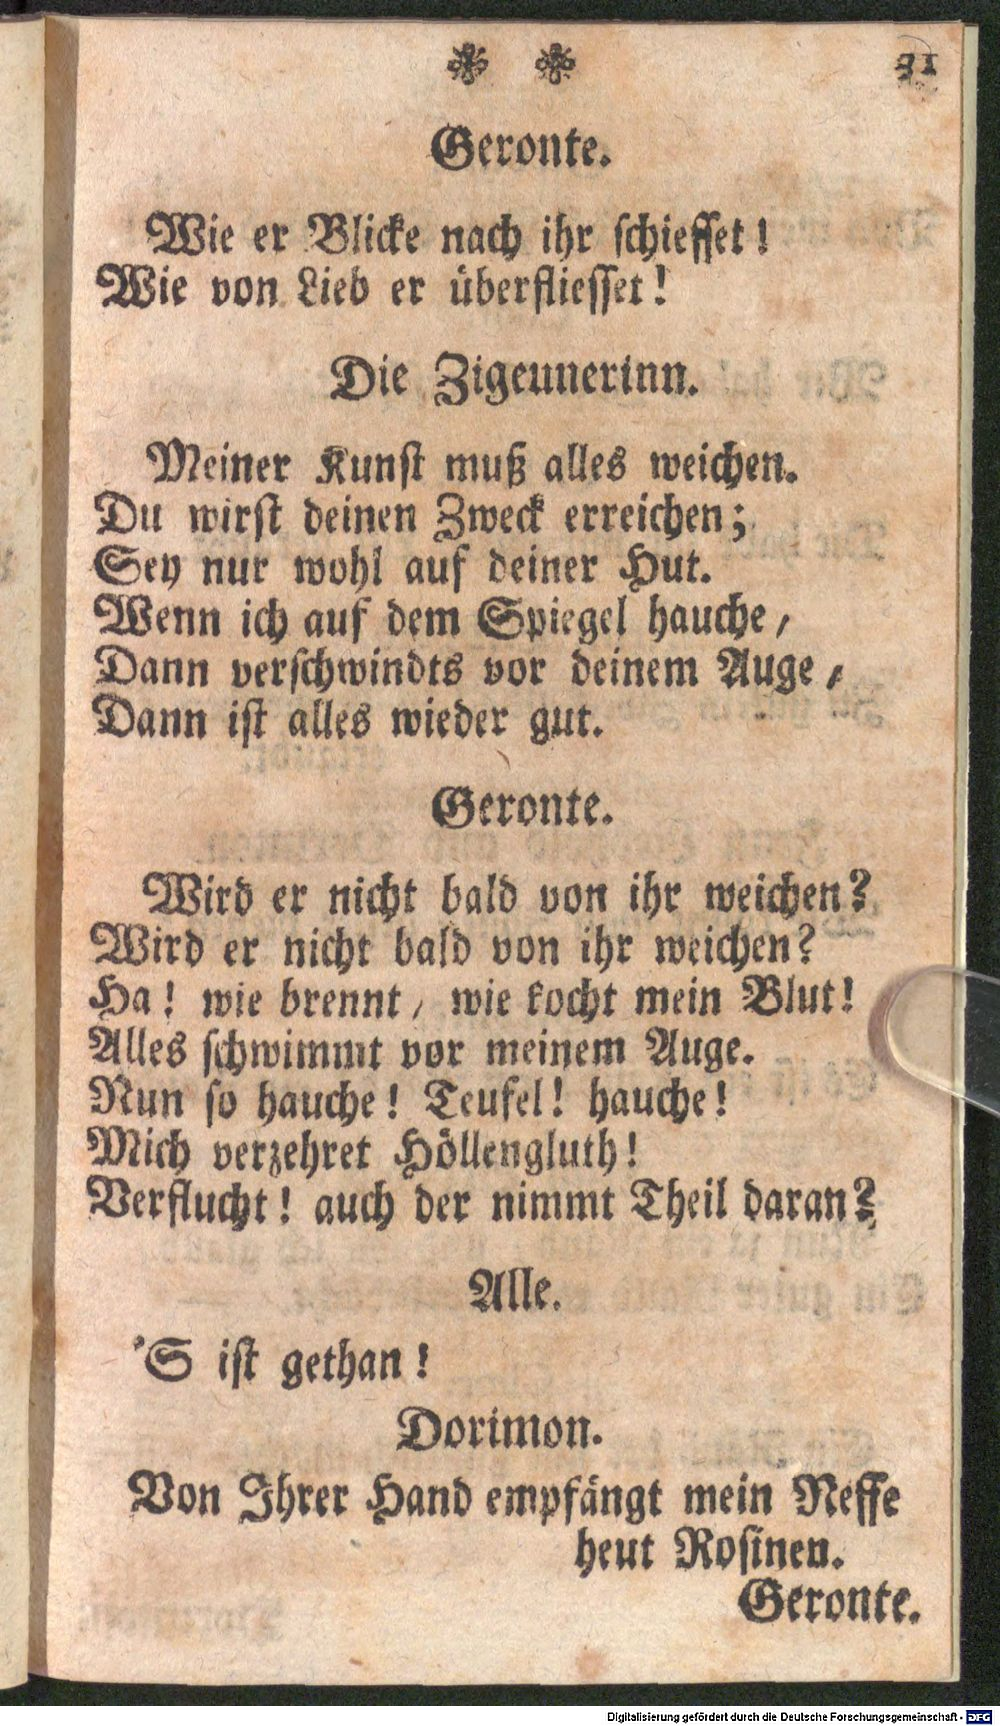 31
Geronte.
Wie er Blicke nach ihr schiesset!
Wie von Lieb er überfliesset!
Die Zigeunerinn.
Meiner Kunst muß alles weichen.
Du wirst deinen Zweck erreichen;
Sey nur wohl auf deiner Hut.
Wenn ich auf dem Spiegel hauche,
Dann verschwindts vor deinem Auge,
Dann ist alles wieder gut.
Geronte.
Wird er nicht bald von ihr weichen?
Wird er nicht bald von ihr weichen?
Ha! wie brennt, wie kocht mein Blut!
Alles schwimmt vor meinem Auge.
Nun so hauche! Teufel! hauche!
Mich verzehret Höllengluth!
Verflucht! auch der nimmt Theil daran?
Alle.
'S ist gethan!
Dorimon.
Von Ihrer Hand empfängt mein Neffe
heut Rosinen.
Geronte.
Digitalisierung gefördert durch die Deutsche Forschungsgemeinschaft - DFG